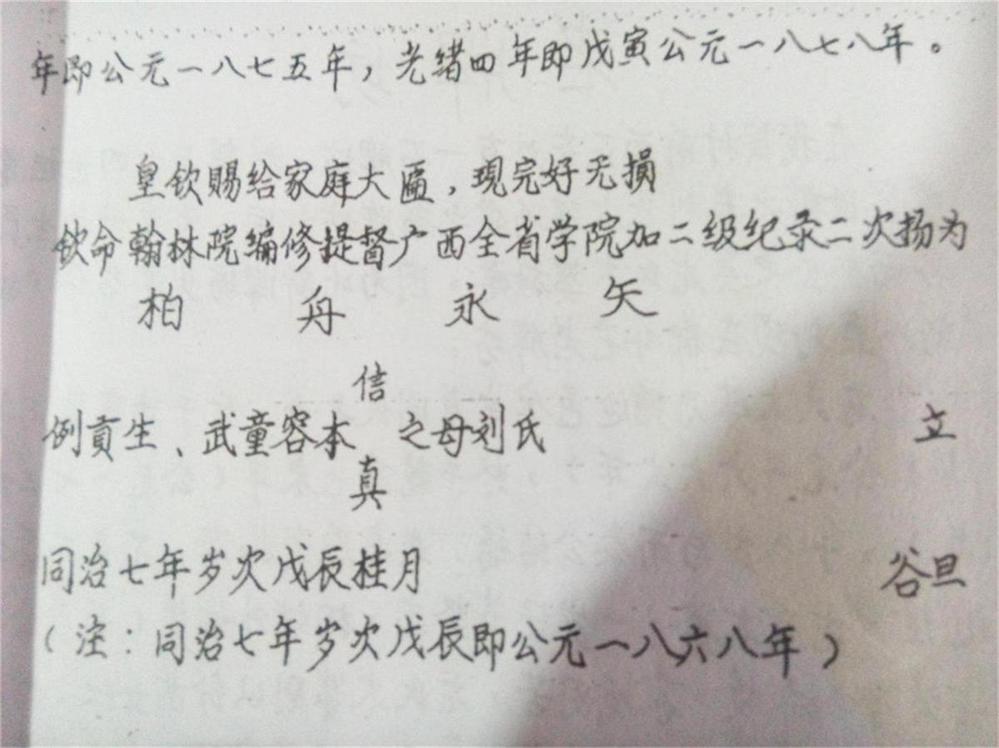 年即公元一八七五年，光绪四年即戊寅公元一八七八年。
皇钦赐给家庭大匾，现完好无损
钦命翰林院编修提督广西全省学院加二级纪录二次扬为
柏舟永矢
信
例贡生、武童容本 之母刘氏 立
真
同治七年岁次戊辰桂月 谷旦
（注：同治七年岁次戊辰即公元一八六八年）